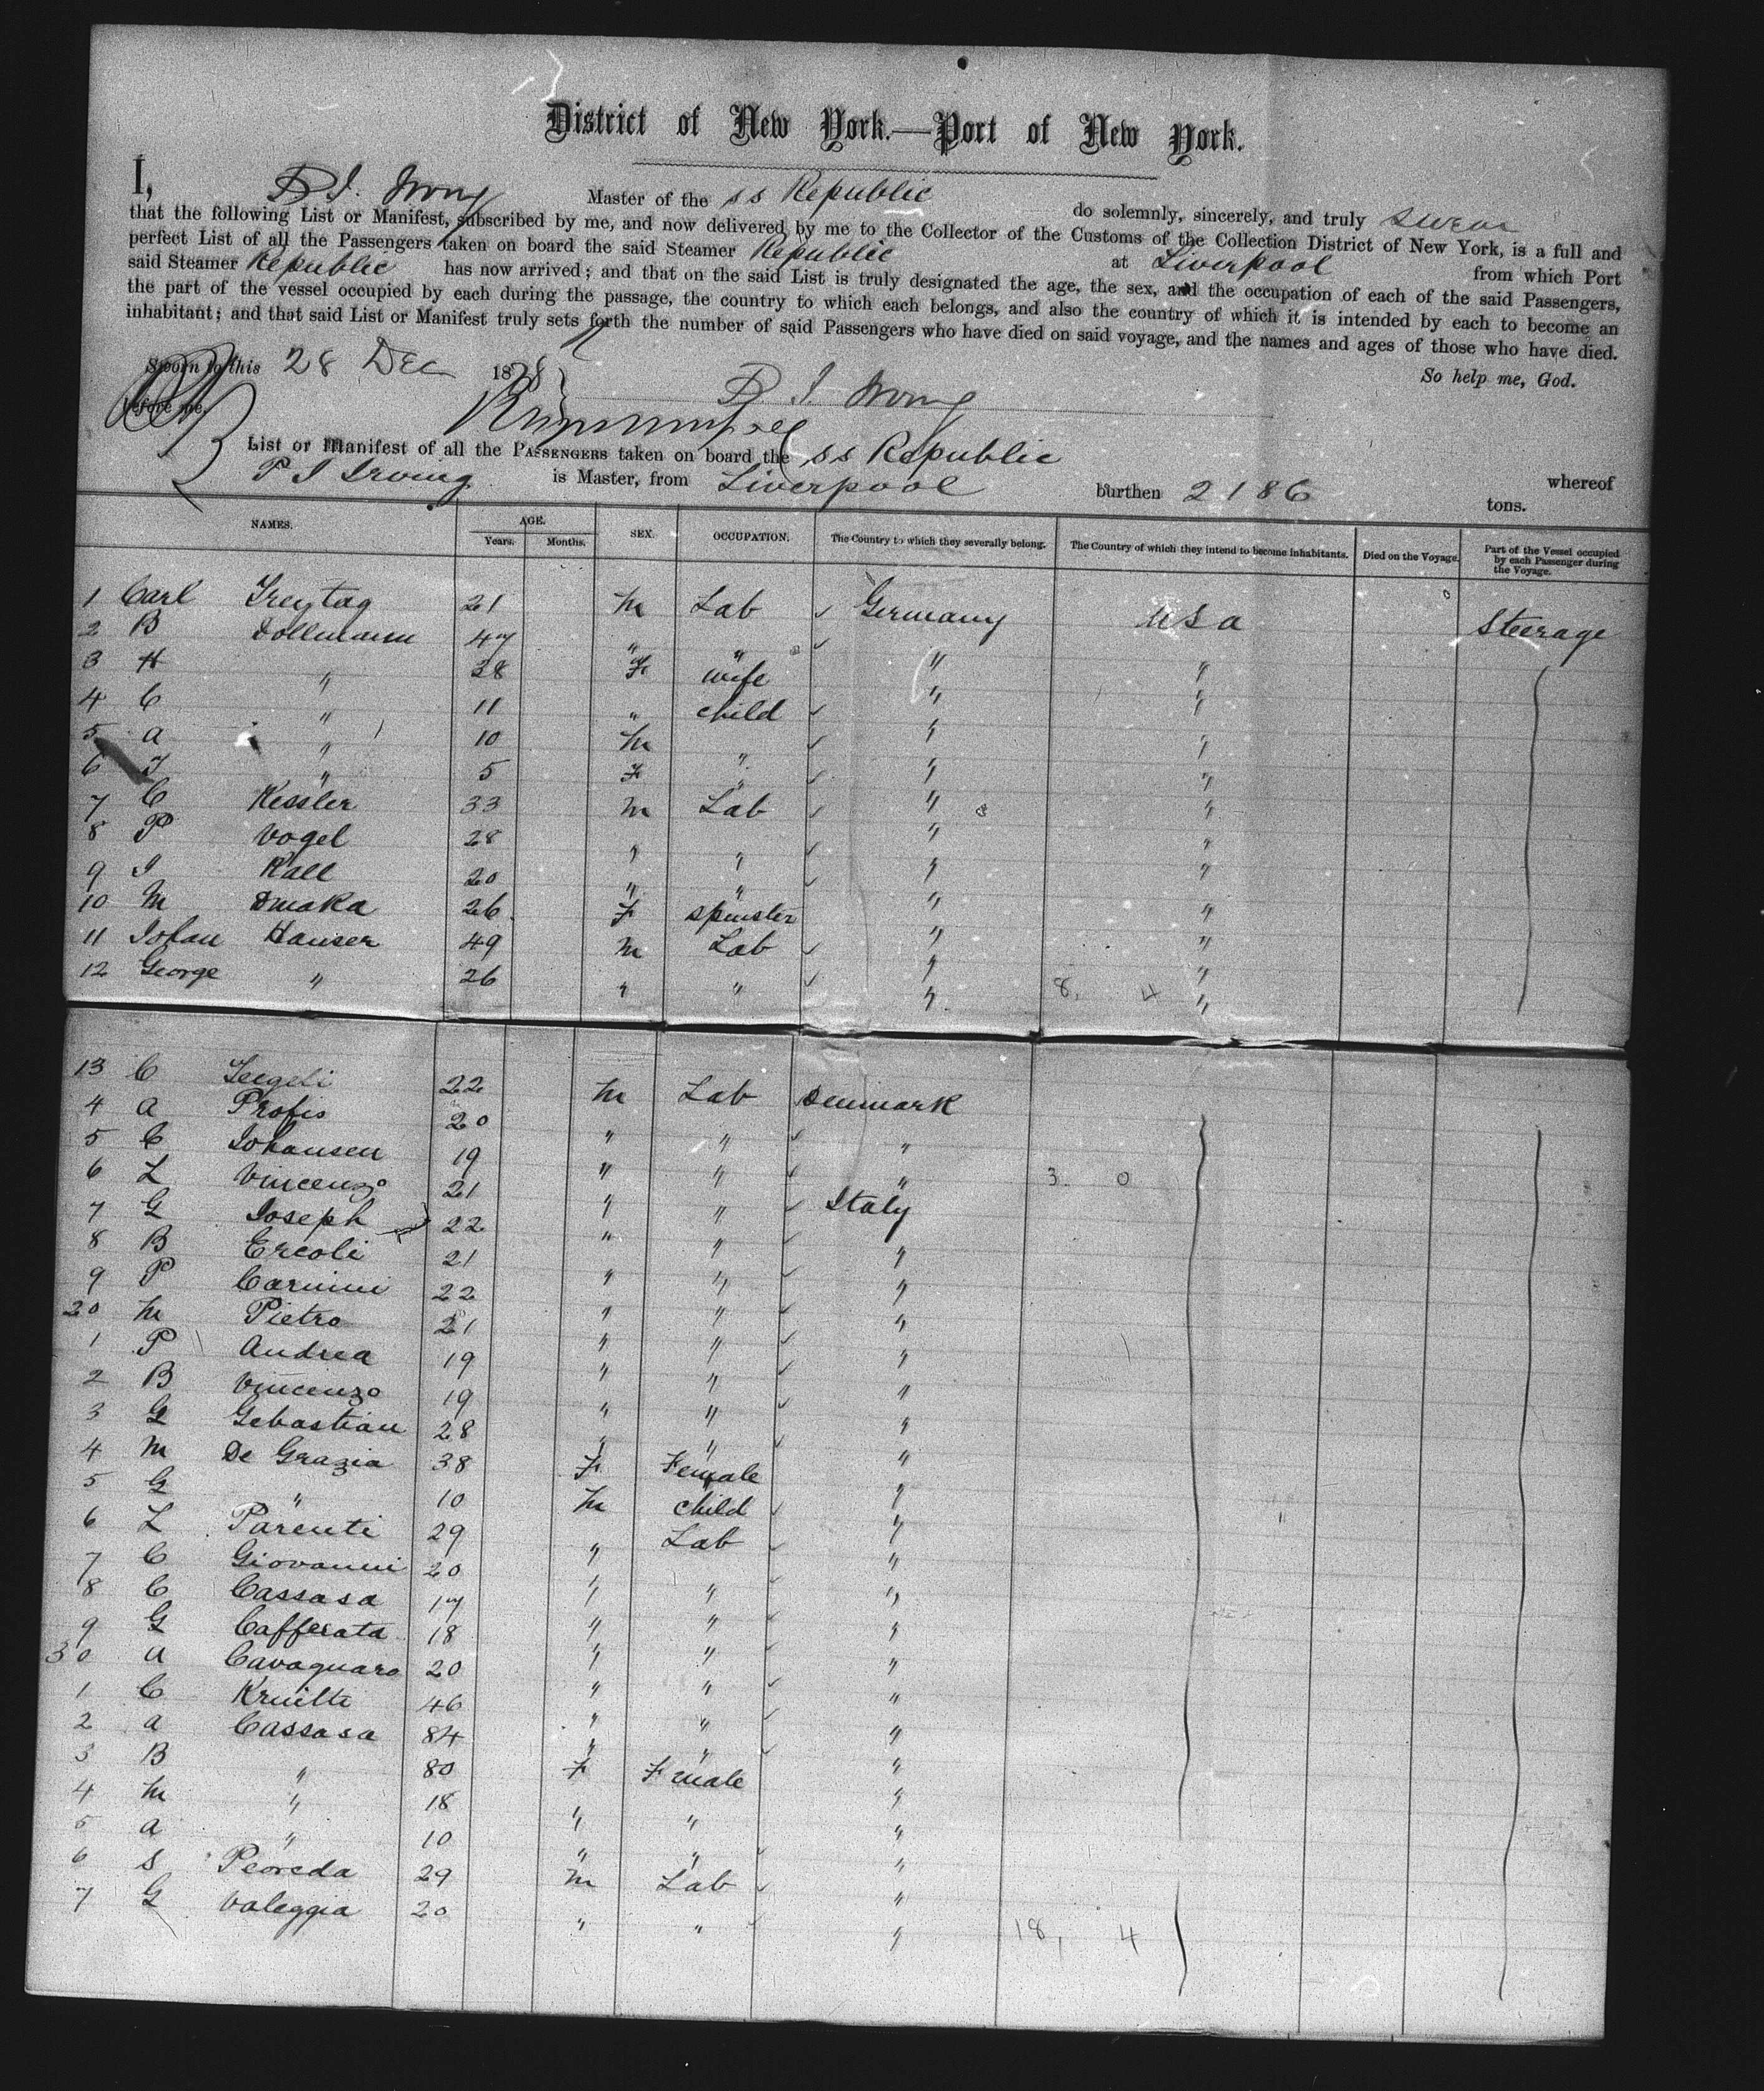 District of New York.—Port of New York.
I, P. J. Irving Master of the SS Republic do solemnly, sincerely, and truly swear
that the following List or Manifest, subscribed by me, and now delivered by me to the Collector of the Customs of the Collection District of New York, is a full and
perfect List of all the Passengers taken on board the said Steamer Republic at Liverpool from which Port
said Steamer Republic has now arrived; and that on the said List is truly designated the age, the sex, and the occupation of each of the said Passengers,
the part of the vessel occupied by each during the passage, the country to which each belongs, and also the country of which it is intended by each to become an
inhabitant; and that said List or Manifest truly sets forth the number of said Passengers who have died on said voyage, and the names and ages of those who have died.
So help me, God.
Sworn to this 28 Dec 1878
P J Irving
before me,
List or Manifest of all the Passengers taken on board the SS Republic whereof
P J Irving is Master, from Liverpool burthen 2186 tons.
NAMES. AGE. Years. Months. SEX. OCCUPATION. The Country to which they severally belong. The Country of which they intend to become inhabitants. Died on the Voyage. Part of the Vessel occupied by each Passenger during the Voyage.
1 Carl Freytag 21 M Lab Germany USA Steerage
2 B Dollmann 47 " " " "
3 H " 38 F wife " "
4 C " 11 " child " "
5 A " 10 M " " "
6 " 5 F " " "
7 C Kessler 33 M Lab " "
8 P Vogel 28 " " " "
9 J Kall 20 " " " "
10 M Dmoka 26 F Spinster " "
11 Johan Hauser 49 M Lab " "
12 George " 26 " " " 8, 4 "
13 C 22 M Lab Denmark
4 A Profis 20 " " "
5 C Johansen 19 " " " 3 0
6 L Vincenzo 21 " " Italy
7 G Joseph 22 " " "
8 B Ercoli 21 " " "
9 P Carnini 22 " " "
20 M Pietro 21 " " "
1 P Andrea 19 " " "
2 B Vincenzo 19 " " "
3 G Sebastian 28 " " "
4 M De Grazia 38 F Female "
5 G " 10 M child "
6 L Parenti 29 " Lab "
7 C Giovanni 20 " " "
8 C Cassasa 17 " " "
9 G Cafferata 18 " " "
30 A Cavagnaro 20 " " "
1 C 46 " " "
2 A Cassasa 84 " " "
3 B " 80 F Female "
4 M " 18 " " "
5 A " 10 " " "
6 S Peoreda 29 M Lab "
7 G Valeggia 20 " " " 18, 4